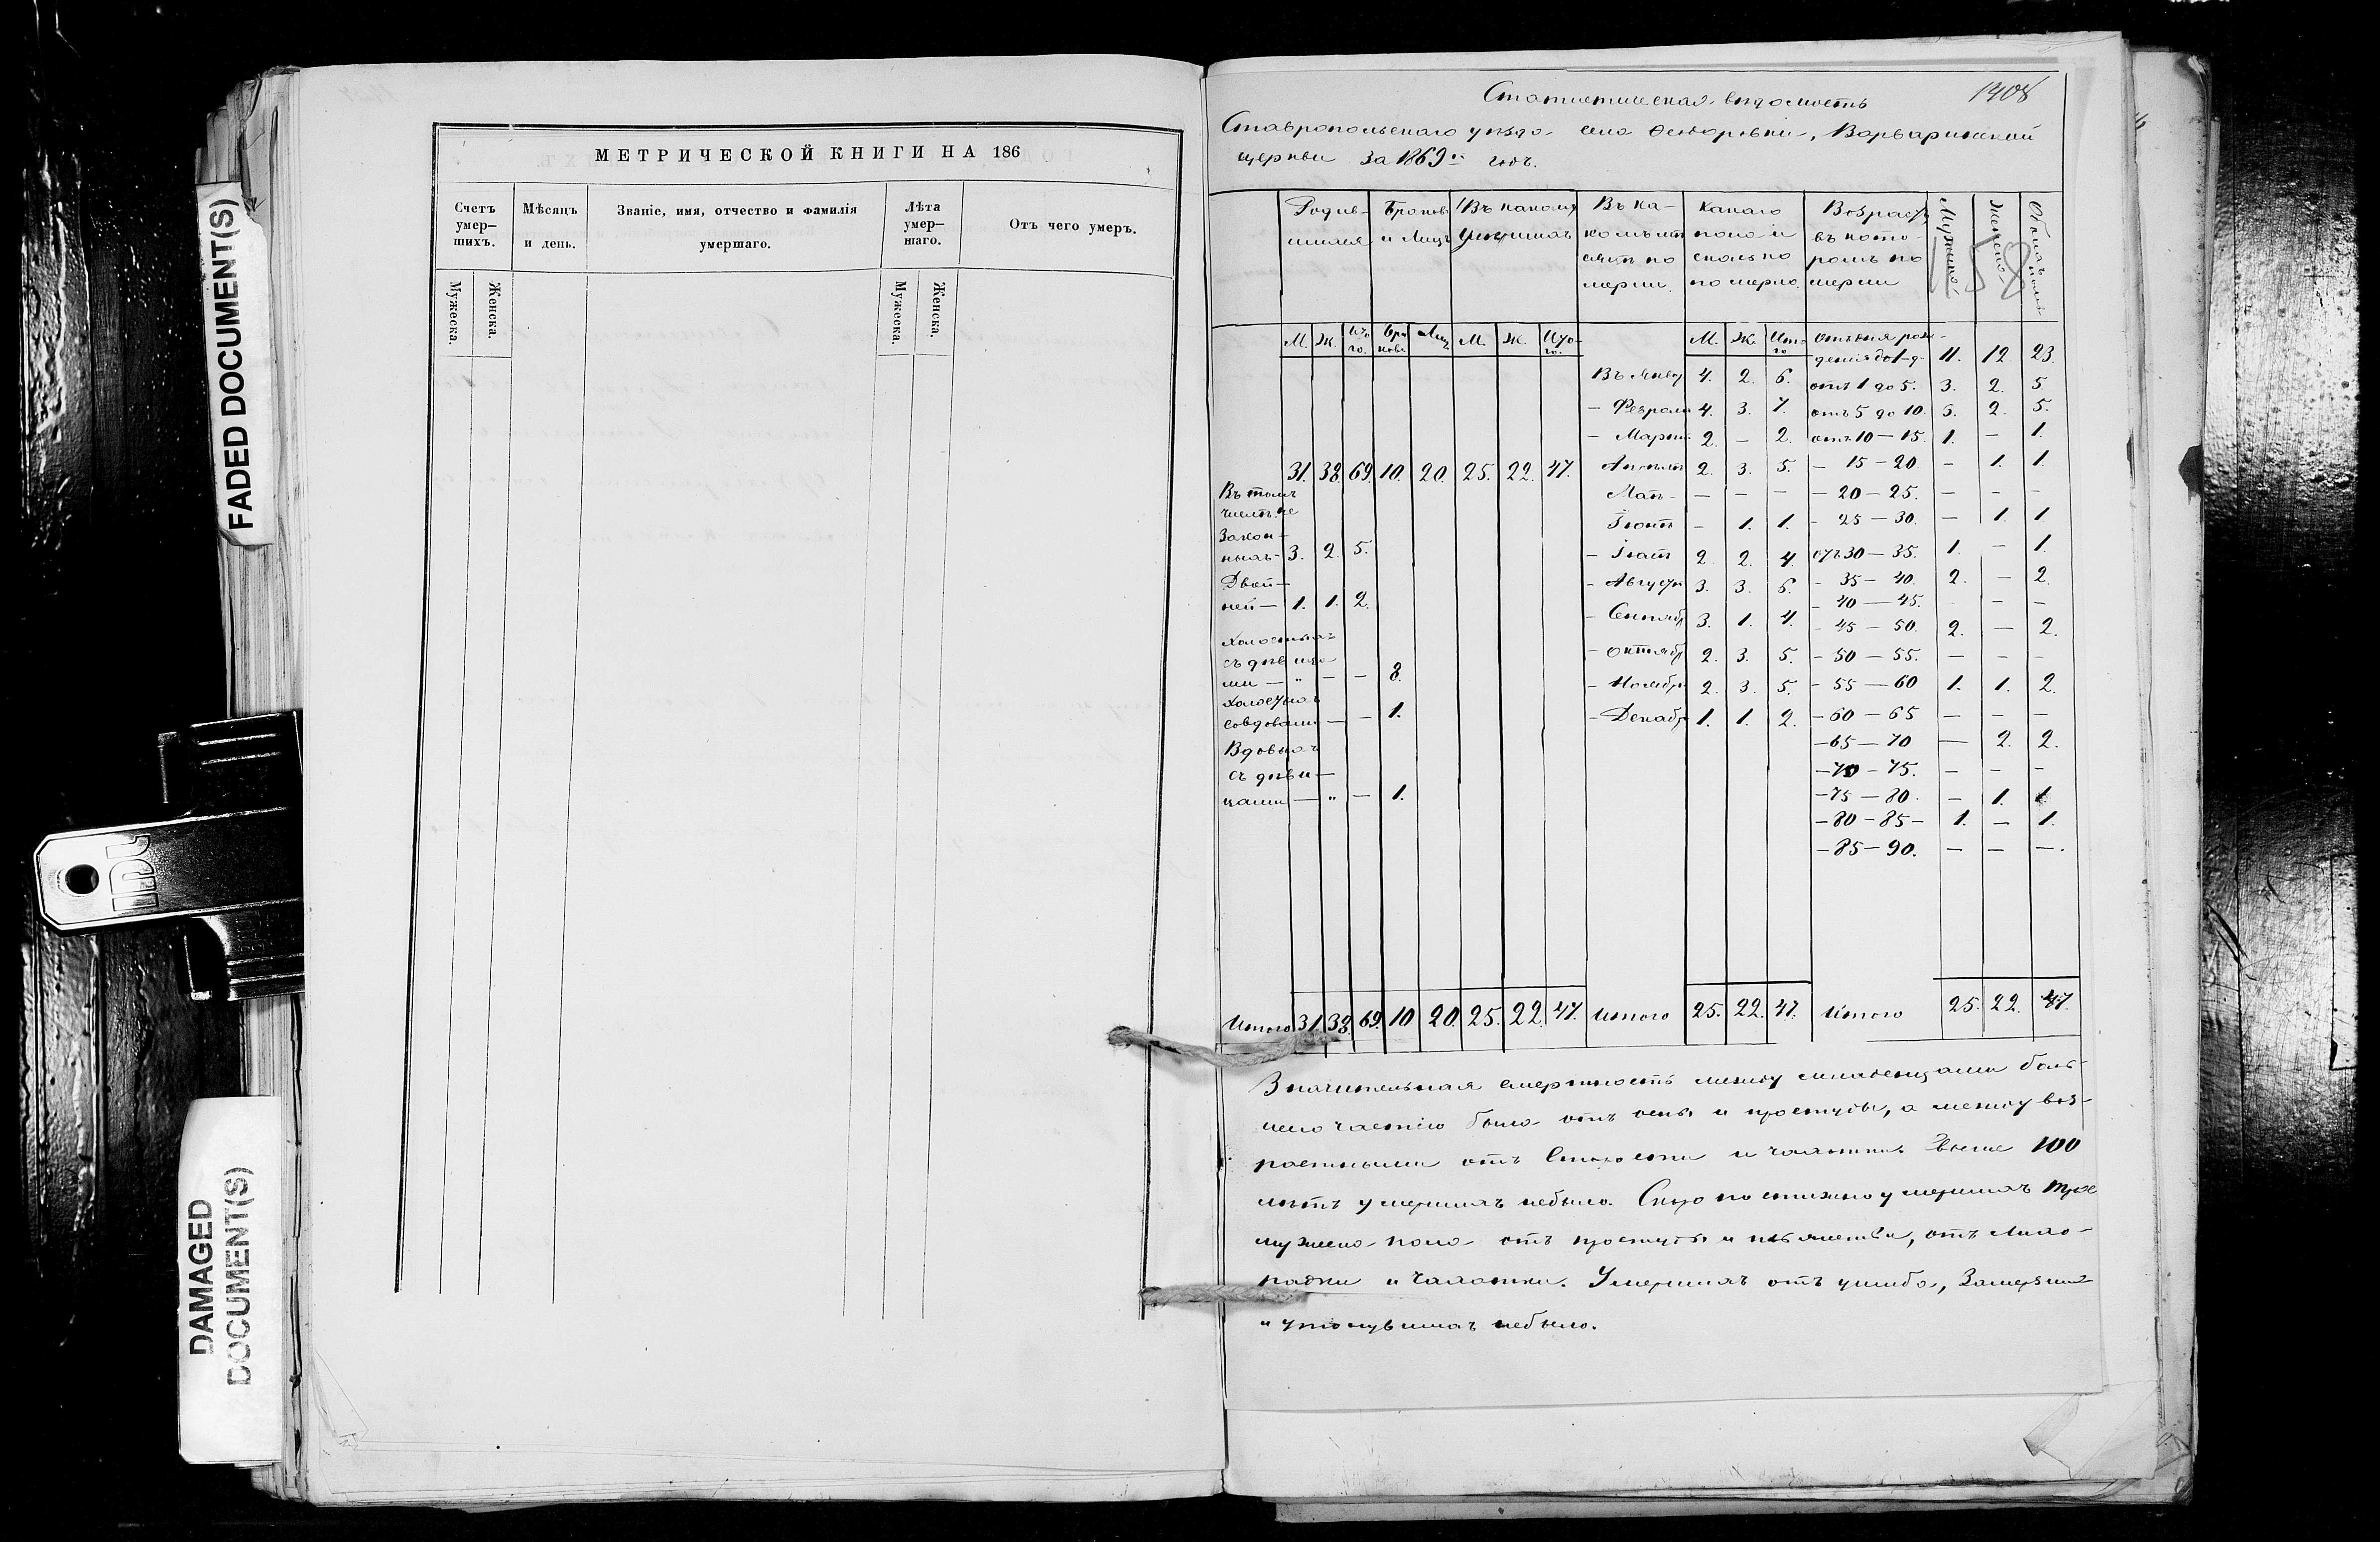 FADED DOCUMENT(S)
DAMAGED
DOCUMENT(S)
МЕТРИЧЕСКОЙ КНИГИ НА 186
Счетъ умер–шихъ.
Мѣсяцъ и день.
Званіе, имя, отчество и фамилія умершаго.
Лѣта умер–шаго.
Отъ чего умеръ.
Мужеска.
Женска.
Мужеска.
Женска.
1408
Статистическая вѣдомость
Ставропольскаго уѣзда села Ѳедоровки, Варваринской
церкви за 1869й годъ.
158
Родив-шихся
Браковъ и лицъ
Умершихъ
Въ ка-комъ мѣ-сяцѣ по-мерли.
Какаго пола и сколько померло.
Возрастъ въ кото-ромъ по-мерли
Мужска.
Женска.
Обоихъ пола
М. Ж. Ито-го. Бра-ковъ Лиц. М. Ж. Ито-го. М. Ж. Ито-го
отъ дня рож-денія до 1-г. 11. 12 23.
Въ Янвр 4. 2. 6. отъ 1 до 5. 3. 2. 5
– Феврали 4. 3. 7. отъ 5 до 10. 3. 2. 5.
– Мартѣ 2. – 2. отъ 10 – 15. 1. – 1.
31. 38. 69. 10. 20. 25. 22. 47. Апрѣлѣ 2. 3. 5. – 15 – 20. – 1. 1.
Въ томъ числѣ не
Маѣ – – – – – 20 – 25. – – –
Іюнѣ – 1. 1. – 25 – 30. – 1. 1
Закон-ныхъ – 3. 2. 5.
– Іюлѣ 2. 2. 4. отъ 30 – 35. 1. – 1.
Двой-ней – 1. 1. 2.
– Августѣ 3. 3. 6. – 35 – 40. 2. – 2.
– 40 – 45. – – –
– Сентябр 3. 1. 4. – 45 – 50. 2. – 2.
Холостыхъ съ дѣвица-ми – " – – 8.
– Октябр 2. 3. 5. – 50 – 55. – – –
– Ноябр 2. 3. 5. – 55 – 60 1. 1. 2.
Холостыхъ совдовами – – 1.
– Декабр 1. 1. 2. – 60 – 65 – – –
Вдовыхъ съ дѣви-цами – " – 1.
– 65 – 70 – 2. 2.
– 70 – 75. – – –
– 75 – 80. – 1. 1
– 80 – 85 – 1. – 1.
– 85 – 90. – – –.
Итого 31 38. 69. 10 20. 25. 22. 47. Итого 25. 22. 47. Итого 25. 22. 47.
Значительная смертность между младенцами боль-
шею частію была отъ оспы и простуды, а между воз-
растными отъ старости и чахотки. Свыше 100
лѣтъ умершихъ небыло. Скоропостижно умершихъ трое
мужска пола отъ простуды и пьянства, отъ лихо-
радки и чахотки. Умершихъ отъ ушиба, Замерзших
и утонувшихъ небыло.